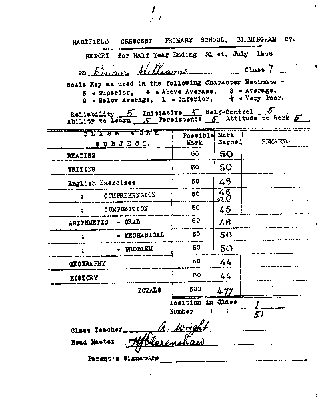 CRESCENT PRIMARY SCHOOL,
REPORT for Half Year Ending 31 st. July
Class 7
Scale Key as used in the following Character Headings -
5 - Superior, 4 - Above Average, 3 - Average.
2 - Below Average, 1 - Inferior, Very Poor.
Reliability 5 Initiative 5 Self-Control 5
Ability to Learn 5 5 Attitude to Work 5
CLASS WORK Possible Mark
SUBJECT. Mark Earned REMARKS.
READING 50 50
WRITING 50 50
English Exercises 50 48
" COMPREHENSION 50
" COMPOSITION 50 45
ARITHMETIC - ORAL 50 48
" - MECHANICAL 50 50
" - PROBLEM 50 50
GEOGRAPHY 50 44
HISTORY 50 44
TOTALS 500 477
Position in Class 1
Number " " 51
Class Teacher A. Wright
Head Master
Parent's Signature